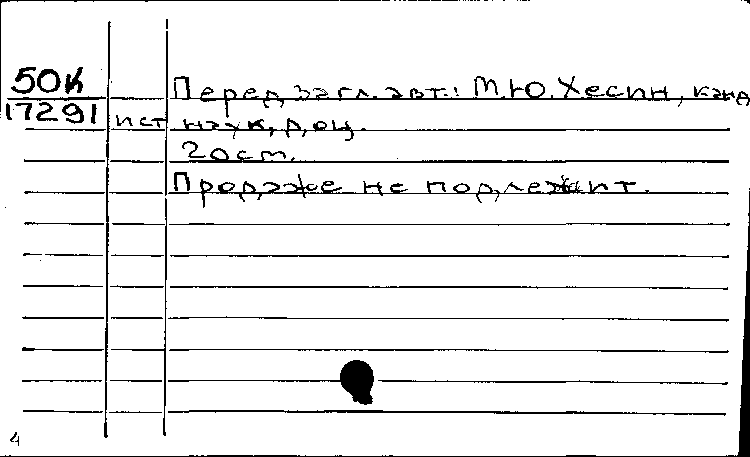 50К
17291
Перед загл. авт.: М.Ю. Хесин, канд
ист наук, доц.
20 см.
Продаже не подлежит.
4